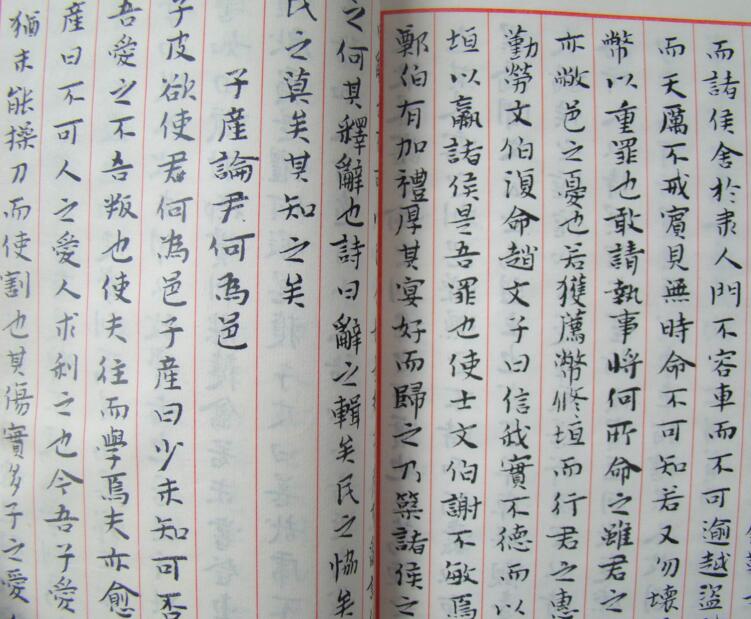 而諸侯舍於隶人門不容車而不可逾越盜
而天厲不戒賓貝無時命不可知若又勿壞
幣以重罪也敢請執事將何所命之雖君之
亦敝邑之憂也若獲薦幣修垣而行君之惠
勤勞文伯復命趙文子曰信我實不德而以
垣以贏諸侯是吾罪也使士文伯謝不敏焉
鄭伯有加禮厚其宴好而歸之乃築諸侯之
之何其釋辭也詩曰辭之輯矣民之協矣
民之莫矣其知之矣
子產論尹何為邑
子皮欲使君何為邑子產曰少未知可否
吾愛之不吾叛也使夫往而學焉夫亦愈
產曰不可人之愛人求利之也今吾子愛
猶未能操刀而使割也其傷實多子之愛